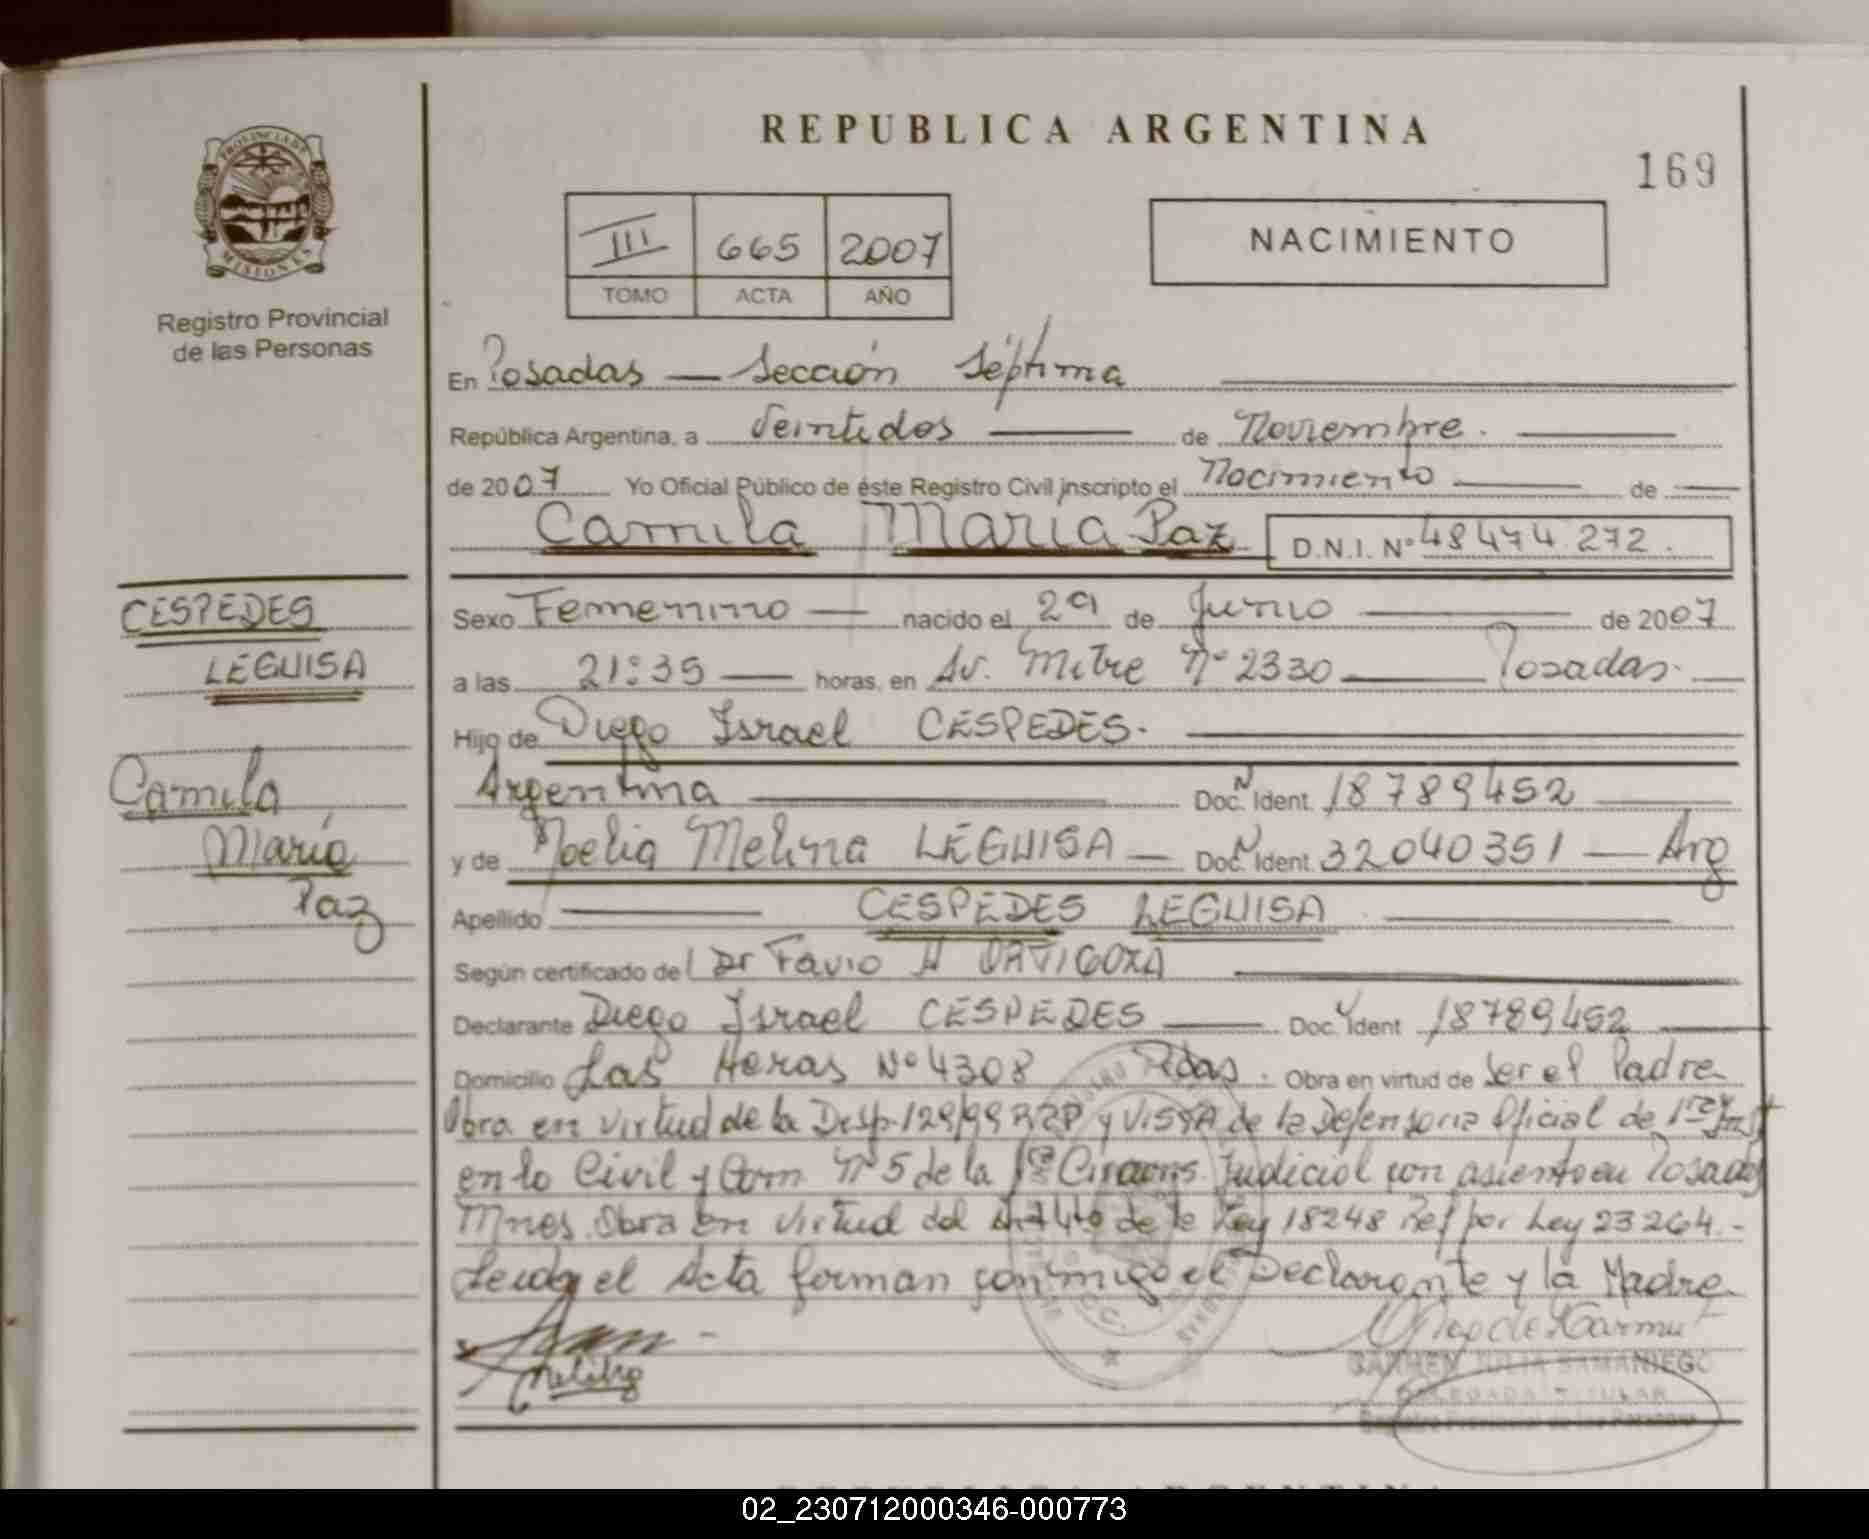 REPUBLICA ARGENTINA
169
PROVINCIA DE
MISIONES
Registro Provincial
de las Personas
III 665 2007
TOMO ACTA AÑO
NACIMIENTO
En Posadas — Sección Séptima
República Argentina, a Veintidos — de Noviembre.
de 2007 Yo Oficial Público de éste Registro Civil inscripto el Nacimiento — de —
Camila María Paz D.N.I. Nº 48474272.
CESPEDES
LEGUISA
Camila
María
Paz
Sexo Femenino — nacido el 29 de Junio — de 2007
a las 21:35 — horas, en Av. Mitre Nº 2330 — Posadas.
Hijo de Diego Israel CESPEDES.
Argentina — Doc. Ident. 18789452
y de Noelia Melina LEGUISA — Doc. Ident. 32040351 — Arg
Apellido — CESPEDES LEGUISA
Según certificado del Dr Favio H
Declarante Diego Israel CESPEDES — Doc. Ident 18789452
Domicilio Las Heras Nº 4308 Pdas. Obra en virtud de ser el Padre
Obra en virtud de la Disp. 129/99 RPP y VISTA de la Defensoria Oficial de 1ra Inst
en lo Civil y Com Nº 5 de la 1ra Circuns. Judicial con asiento en Posadas
Mnes. Obra en virtud del Art 4to de la Ley 18248 Ref por Ley 23264.-
Leida el Acta firman conmigo el Declarante y la Madre
CARMEN JULIA SAMANIEGO
DELEGADA TITULAR
Registro Provincial de las Personas
02_230712000346-000773